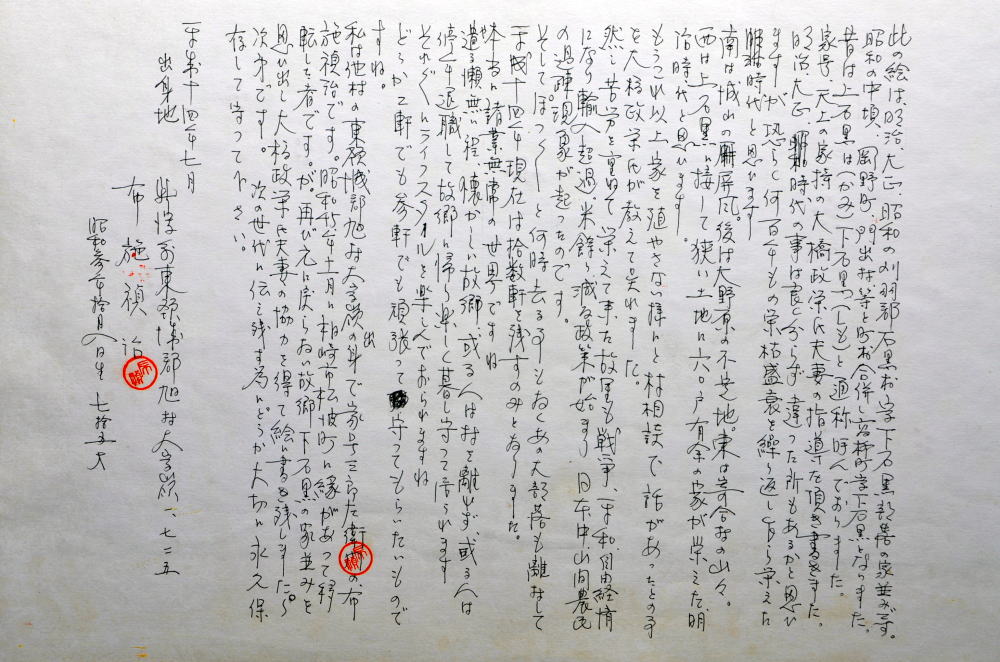 此の絵は明治、大正、昭和の刈羽郡石黒村字下石黒部落の家並みです。
昭和の中頃、岡野町、門出村等と町村合併し高柳町字下石黒となりました。
昔は上石黒は(かみ)下石黒(しも)と通称呼んでおりました。
家号、天上の家持の大橋政栄氏夫妻の指導を頂き書きました。
明治、大正、昭和時代の事は良く分らず違った所もあるかと思い
ますが恐らく何百年もの栄枯盛衰を繰り返しながら栄えた
時代と思います
南は城山の屏風、後は大野原の不芝地。東は寄合村の山々。
西は上石黒に接して狭い土地に六〇戸有余の家が栄えた明
治時代と思います。
もうこれ以上家を殖やさない様にと村相談で話があったとの事
を大橋政栄氏が教えて呉れました。
然し苦労を重ねて栄えて来た故里も戦争、平和、自由経済
になり輸入超過、米余り減反政策が始まり日本中、山間農民
の過疎現象が起ったのです。
そしてぽつぽつと何時去る事もなくあの大部落も離村して
平成十四年現在は拾数軒を残すのみとなりました。
本当に諸業無常の世界ですね
遣る瀬無い程、懐かしい故郷、或る人は村を離れず、或る人は
停年退職して故郷に帰り楽しく暮し守って居られます
それぞれライフスタイルを楽しんでおられますね
どうか二軒でも参軒でも頑張って守ってもらいたいもので
すね。
私は他村の東頸城郡旭村大字嶺の出身で家号三郎左衛門の布
施禎治です。昭和45年十二月に柏崎市松波町に縁があって移
転した者です。が、再び元に戻らぬ故郷下石黒の家並みを
思い出し大橋政栄氏夫妻の協力を得て絵に書き残しました
次第です。次の世代に伝え残す為にどうか大切に永久保
存して守って下さい。
平成十四年七月
出身地 新潟県東頸城郡旭村大字嶺一、七三五
布施禎治
昭和参年拾月八日生 七拾五才